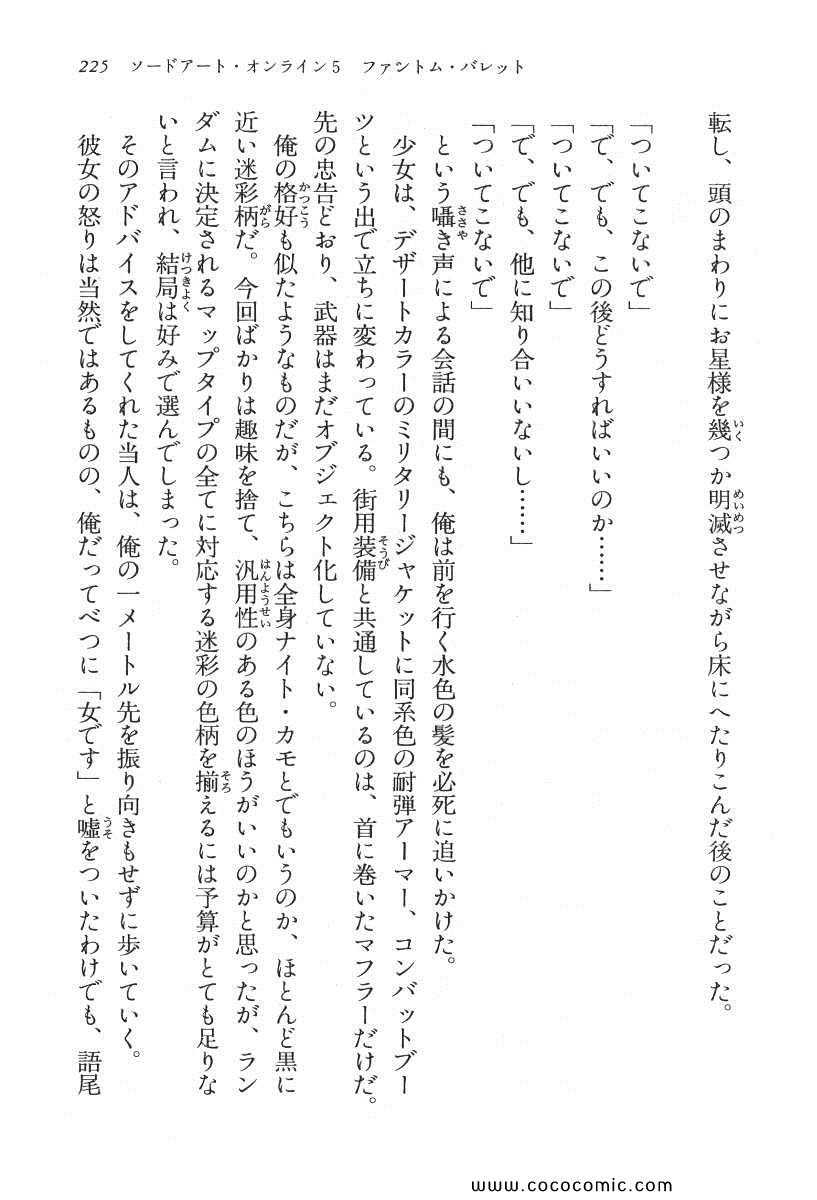 225 ソードアート・オンライン5 ファントム・バレット
転し、頭のまわりにお星様を幾つか明滅させながら床にへたりこんだ後のことだった。
「ついてこないで」
「で、でも、この後どうすればいいのか……」
「ついてこないで」
「で、でも、他に知り合いいないし……」
「ついてこないで」
という囁き声による会話の間にも、俺は前を行く水色の髪を必死に追いかけた。
少女は、デザートカラーのミリタリージャケットに同系色の耐弾アーマー、コンバットブー
ツという出で立ちに変わっている。街用装備と共通しているのは、首に巻いたマフラーだけだ。
先の忠告どおり、武器はまだオブジェクト化していない。
俺の格好も似たようなものだが、こちらは全身ナイト・カモとでもいうのか、ほとんど黒に
近い迷彩柄だ。今回ばかりは趣味を捨て、汎用性のある色のほうがいいのかと思ったが、ラン
ダムに決定されるマップタイプの全てに対応する迷彩の色柄を揃えるには予算がとても足りな
いと言われ、結局は好みで選んでしまった。
そのアドバイスをしてくれた当人は、俺の一メートル先を振り向きもせずに歩いていく。
彼女の怒りは当然ではあるものの、俺だってべつに「女です」と嘘をついたわけでも、語尾
www.cococomic.com